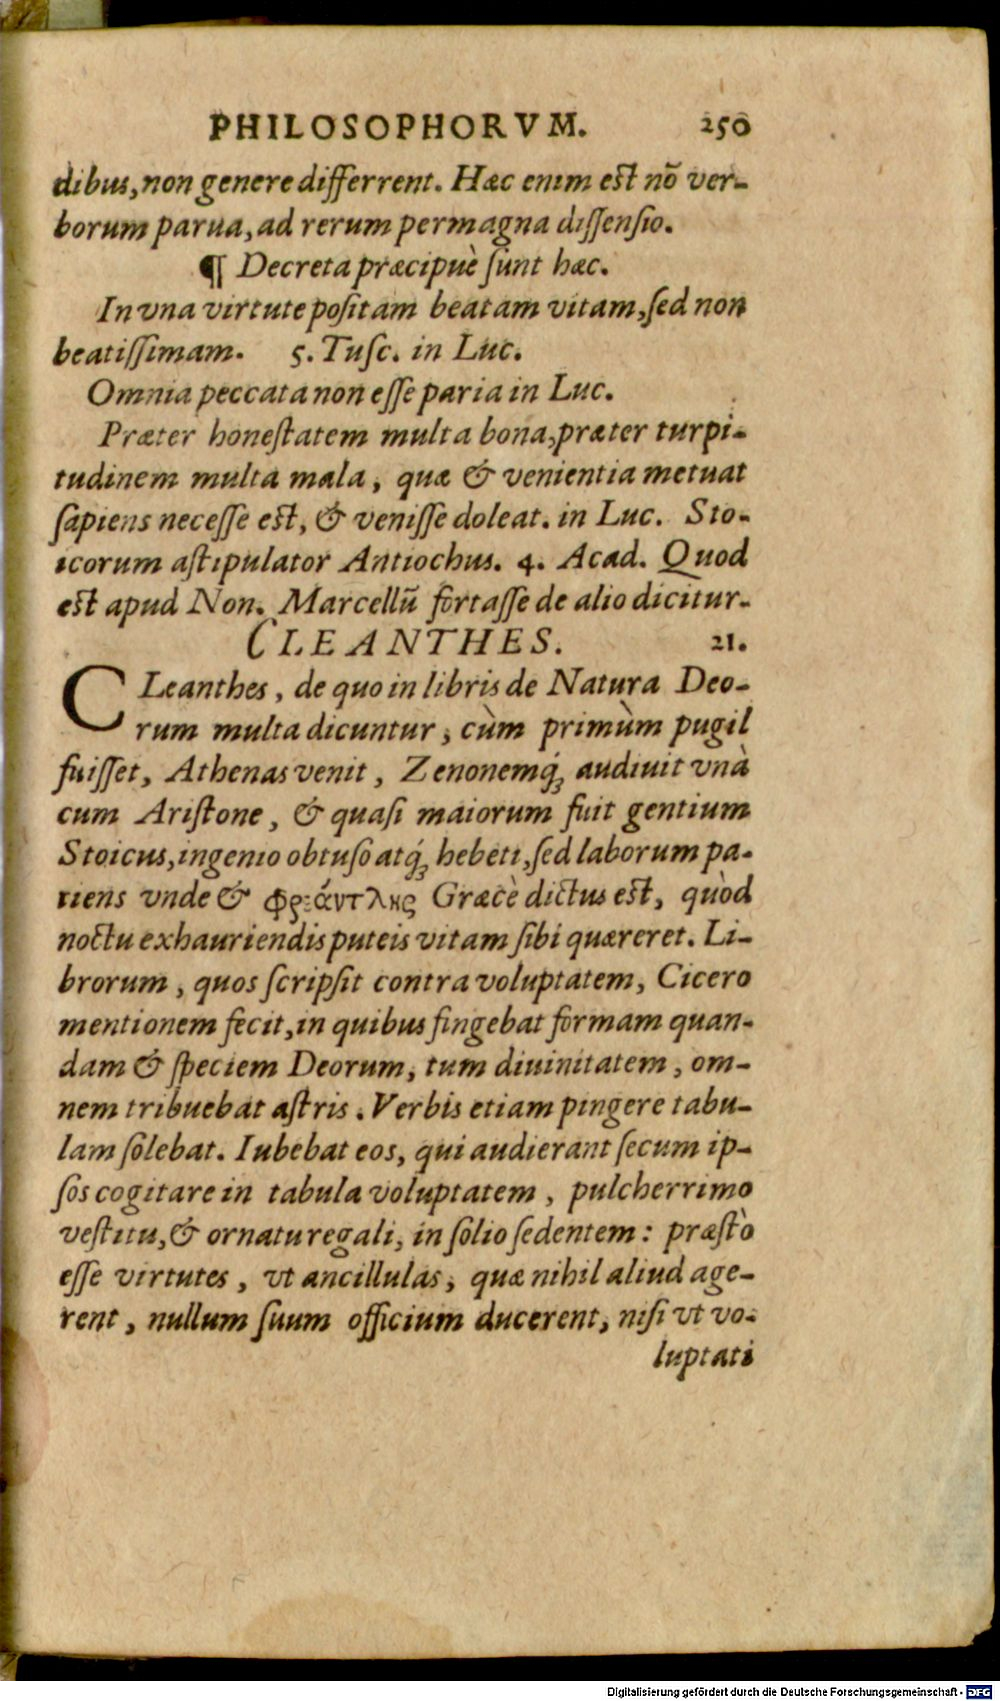 PHILOSOPHORVM. 250
dibus, non genere differrent. Hæc enim est nõ ver-
borum parua, ad rerum permagna dissensio.
¶ Decreta præcipuè sunt hæc.
In vna virtute positam beatam vitam, sed non
beatissimam. 5. Tusc. in Luc.
Omnia peccata non esse paria in Luc.
Præter honestatem multa bona, præter turpi-
tudinem multa mala, quæ & venientia metuat
sapiens necesse est, & venisse doleat. in Luc. Sto-
icorum astipulator Antiochus. 4. Acad. Quod
est apud Non. Marcellũ fortasse de alio dicitur.
CLEANTHES. 21.
CLeanthes, de quo in libris de Natura Deo-
rum multa dicuntur, cùm primùm pugil
fuisset, Athenas venit, Zenonemq́; audiuit vnà
cum Aristone, & quasi maiorum fuit gentium
Stoicus, ingenio obtuso atq́; hebeti, sed laborum pa-
tiens vnde & φρεάντλης Græcè dictus est, quòd
noctu exhauriendis puteis vitam sibi quæreret. Li-
brorum, quos scripsit contra voluptatem, Cicero
mentionem fecit, in quibus fingebat formam quan-
dam & speciem Deorum, tum diuinitatem, om-
nem tribuebat astris. Verbis etiam pingere tabu-
lam solebat. Iubebat eos, qui audierant secum ip-
sos cogitare in tabula voluptatem, pulcherrimo
vestitu, & ornatu regali, in solio sedentem: præstò
esse virtutes, vt ancillulas, quæ nihil aliud age-
rent, nullum suum officium ducerent, nisi vt vo-
luptati
Digitalisierung gefördert durch die Deutsche Forschungsgemeinschaft - DFG